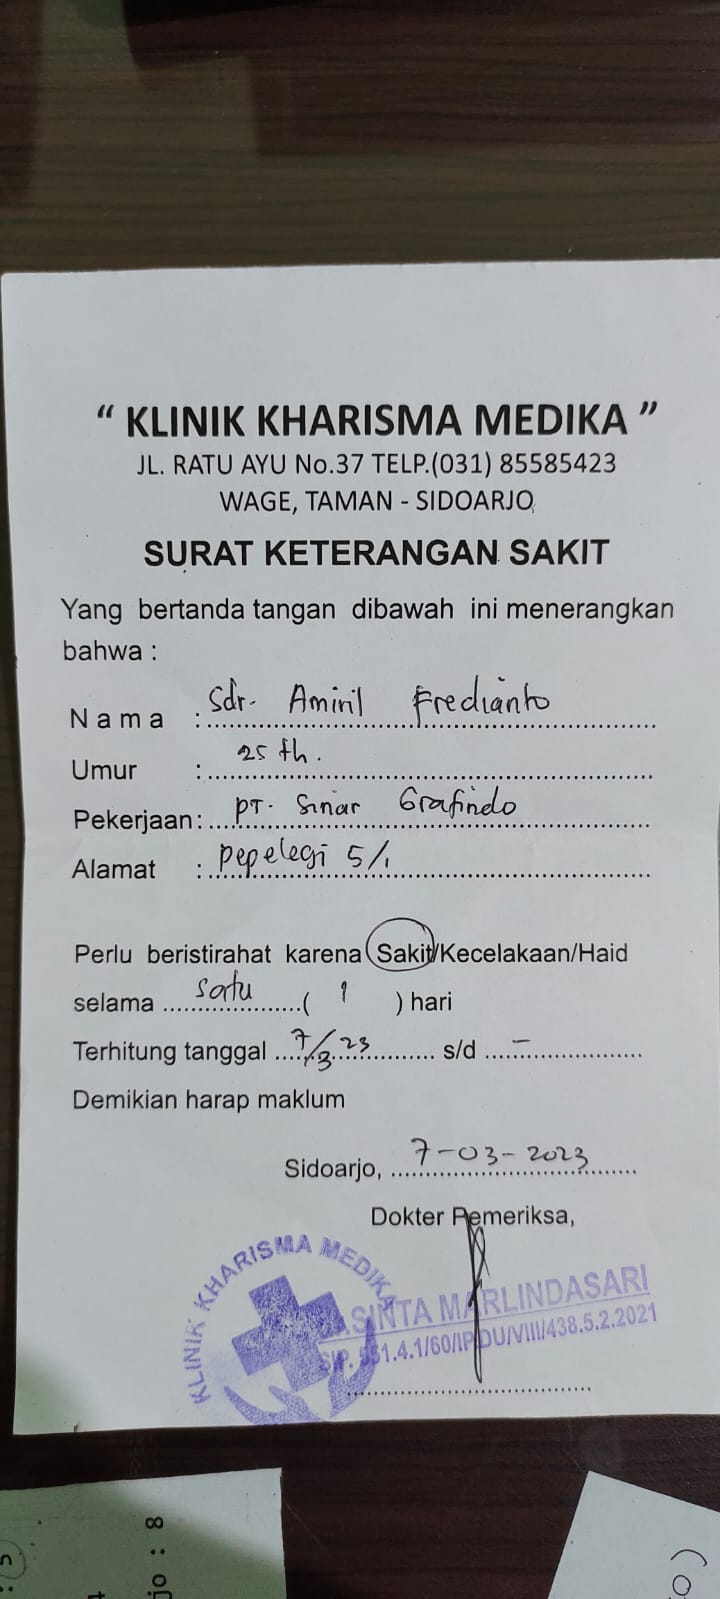 “ KLINIK KHARISMA MEDIKA ”
JL. RATU AYU No.37 TELP.(031) 85585423
WAGE, TAMAN - SIDOARJO
SURAT KETERANGAN SAKIT
Yang bertanda tangan dibawah ini menerangkan
bahwa :
Nama : Sdr. Amiril Fredianto
Umur : 25 th.
Pekerjaan: PT. Sinar Grafindo
Alamat : Pepelegi 5/1
Perlu beristirahat karena Sakit/Kecelakaan/Haid
selama satu ( 1 ) hari
Terhitung tanggal 7/3 23 s/d -
Demikian harap maklum
Sidoarjo, 7-03-2023
Dokter Pemeriksa,
KLINIK KHARISMA MEDIKA
SINTA MARLINDASARI
SIP. 551.4.1/60/IP.DU/VIII/438.5.2.2021
jo : 8